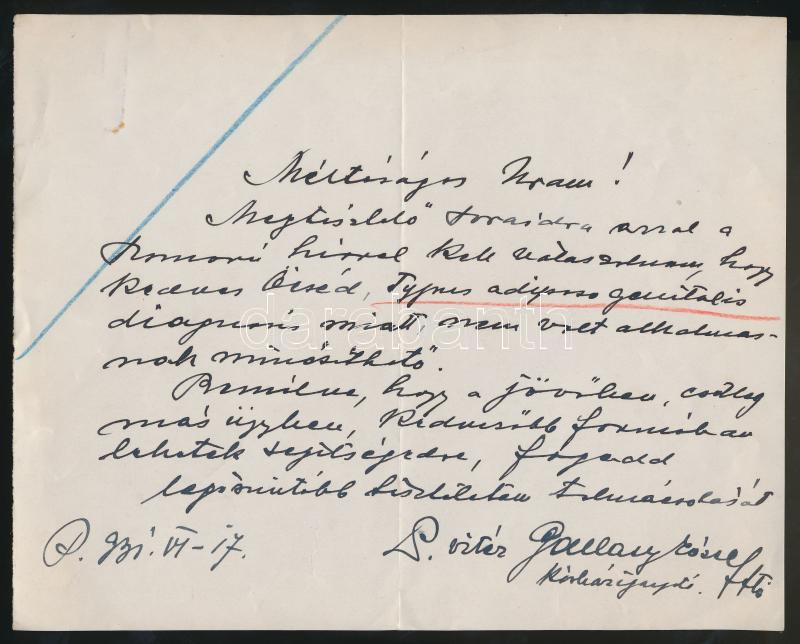 Méltóságos Uram!
Megtisztelő soraidra azzal a
szomorú hírrel kell válaszolnom, hogy
kedves Öcséd, Typus adiposo genitalis
diagnosis miatt, nem volt alkalmas-
nak minősíthető.
Remélve, hogy a jövőben, esetleg
más ügyben, kedvezőbb formában
lehetek segítségedre, fogadd
legőszintébb tiszteletem tolmácsolását
darabanth
VI-17.
vitéz József